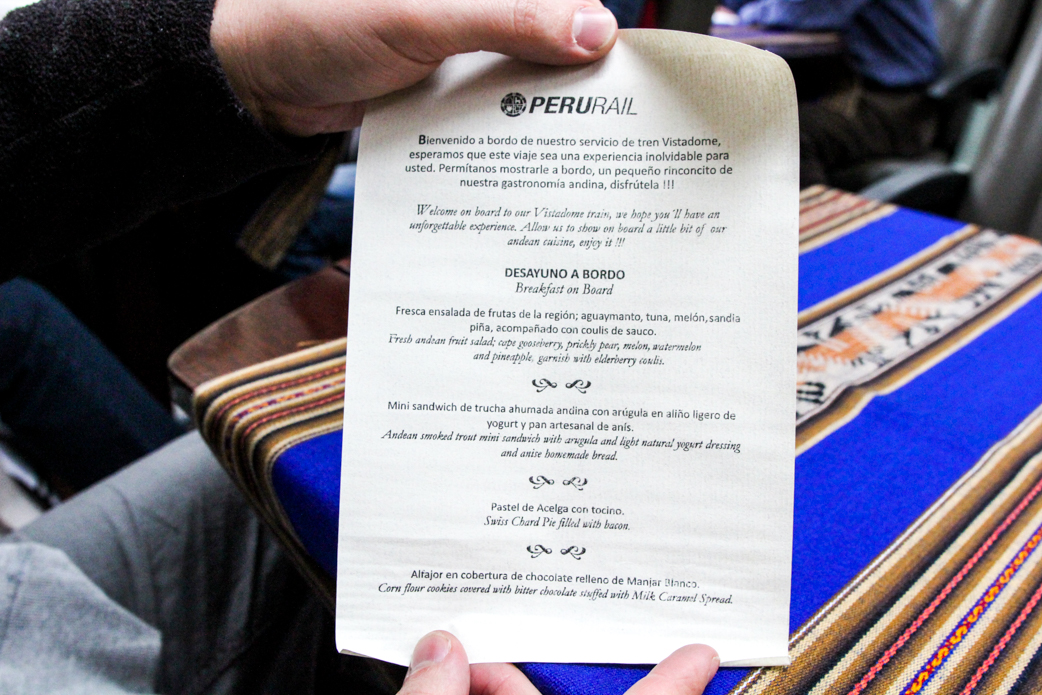 PERURAIL
Bienvenido a bordo de nuestro servicio de tren Vistadome,
esperamos que este viaje sea una experiencia inolvidable para
usted. Permítanos mostrarle a bordo, un pequeño rinconcito de
nuestra gastronomía andina, disfrútela !!!
Welcome on board to our Vistadome train, we hope you´ll have an
unforgettable experience. Allow us to show on board a little bit of our
andean cuisine, enjoy it !!!
DESAYUNO A BORDO
Breakfast on Board
Fresca ensalada de frutas de la región; aguaymanto, tuna, melón,sandia
piña, acompañado con coulis de sauco.
Fresh andean fruit salad; cape gooseberry, prickly pear, melon, watermelon
and pineapple, garnish with elderberry coulis.
Mini sandwich de trucha ahumada andina con arúgula en aliño ligero de
yogurt y pan artesanal de anís.
Andean smoked trout mini sandwich with arugula and light natural yogurt dressing
and anise homemade bread.
Pastel de Acelga con tocino.
Swiss Chard Pie filled with bacon.
Alfajor en cobertura de chocolate relleno de Manjar Blanco.
Corn flour cookies covered with bitter chocolate stuffed with Milk Caramel Spread.